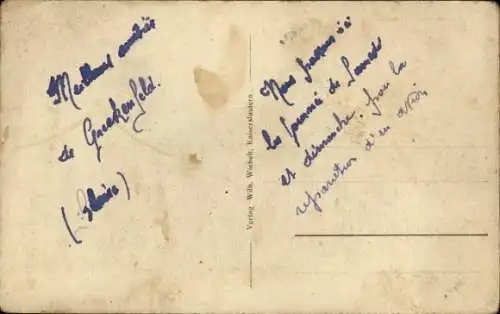 Meilleures amitiés
de Gueckenfeld.
(Rhin)
Verlag Wilh. Wiehelt, Kaiserslautern
Nous passons ici
la journée de Samedi
et dimanche, pour la
réparation d'un avion